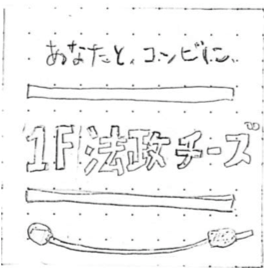 あなたと、コンビに、
1F法政チーズ